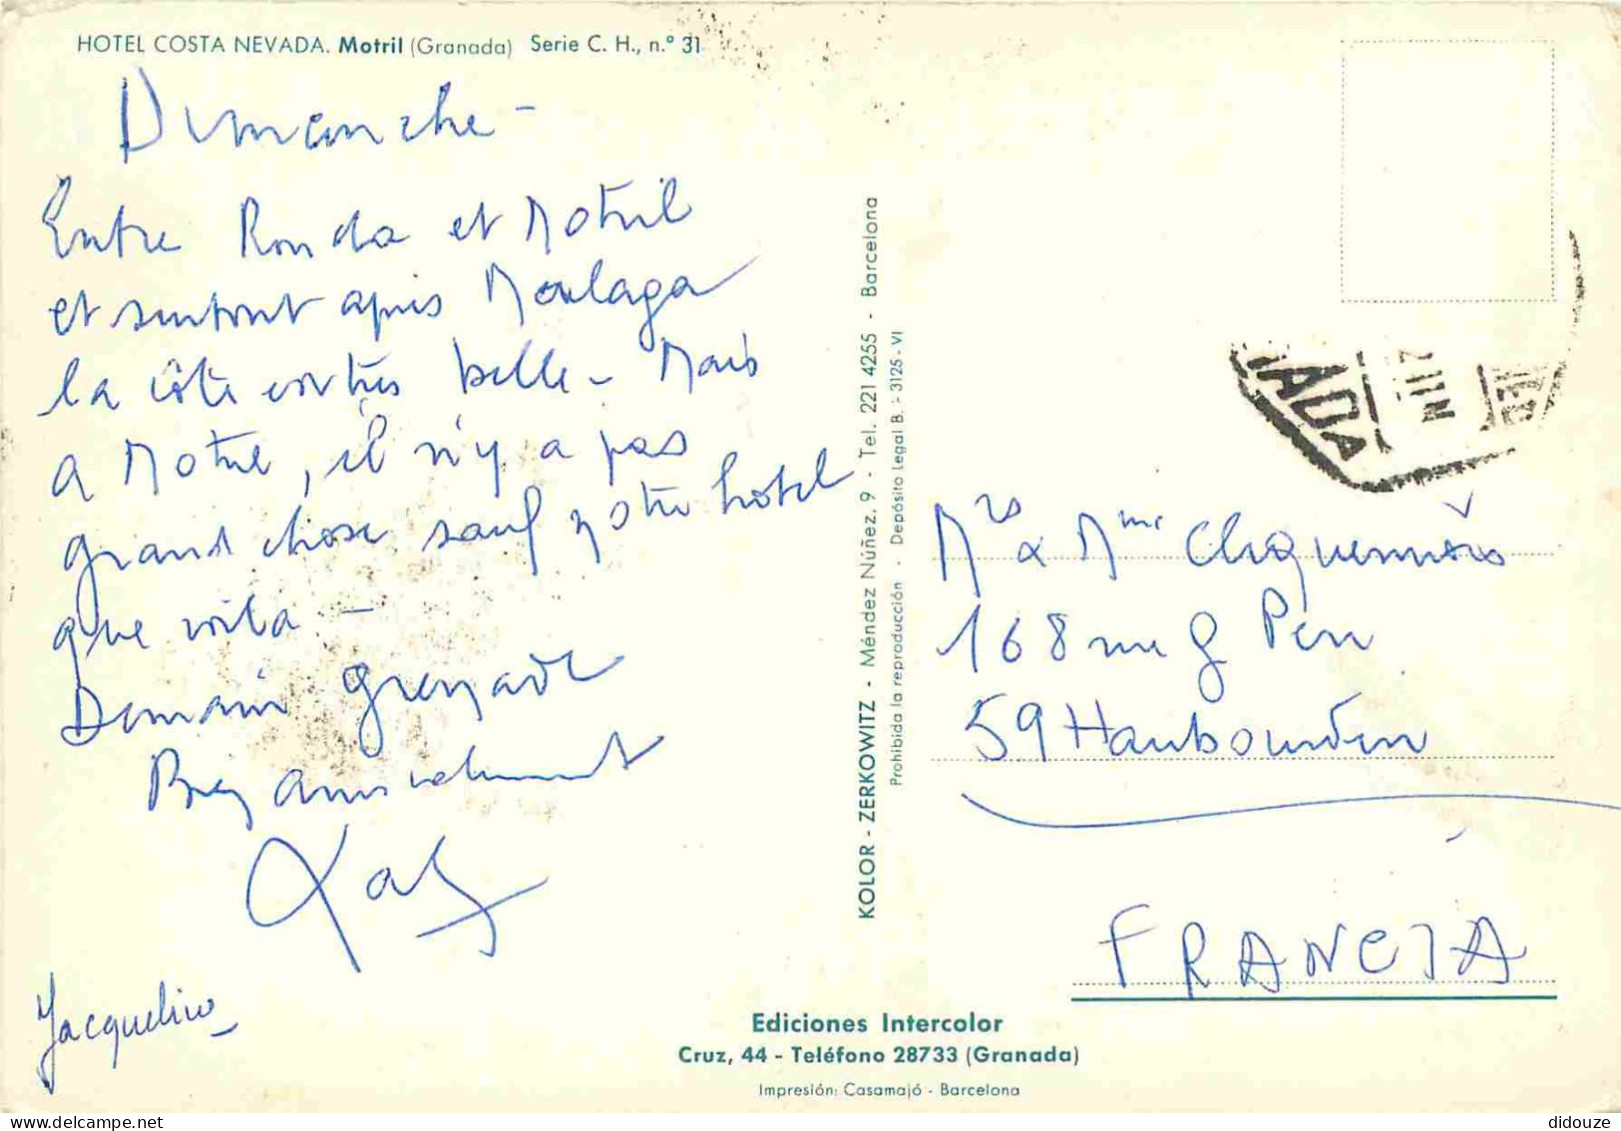 HOTEL COSTA NEVADA. Motril (Granada) Serie C. H., n.º 31
Dimanche -
Entre Ronda et Motril
et surtout après Malaga
la côte est très belle - Mais
a Motril, il n'y a pas
grand chose sauf notre hotel
que voila -
Demain Grenade
Bien amicalement
Jacqueline
KOLOR - ZERKOWITZ - Méndez Núñez, 9 - Tel. 221 4255 - Barcelona
Prohibida la reproducción - Depósito Legal B. - 3125 - VI
ADA
Mrs & Mme
168 rue G Péri
59 Haubourdin
FRANCIA
Ediciones Intercolor
Cruz, 44 - Teléfono 28733 (Granada)
Impresión: Casamajó - Barcelona
didouze